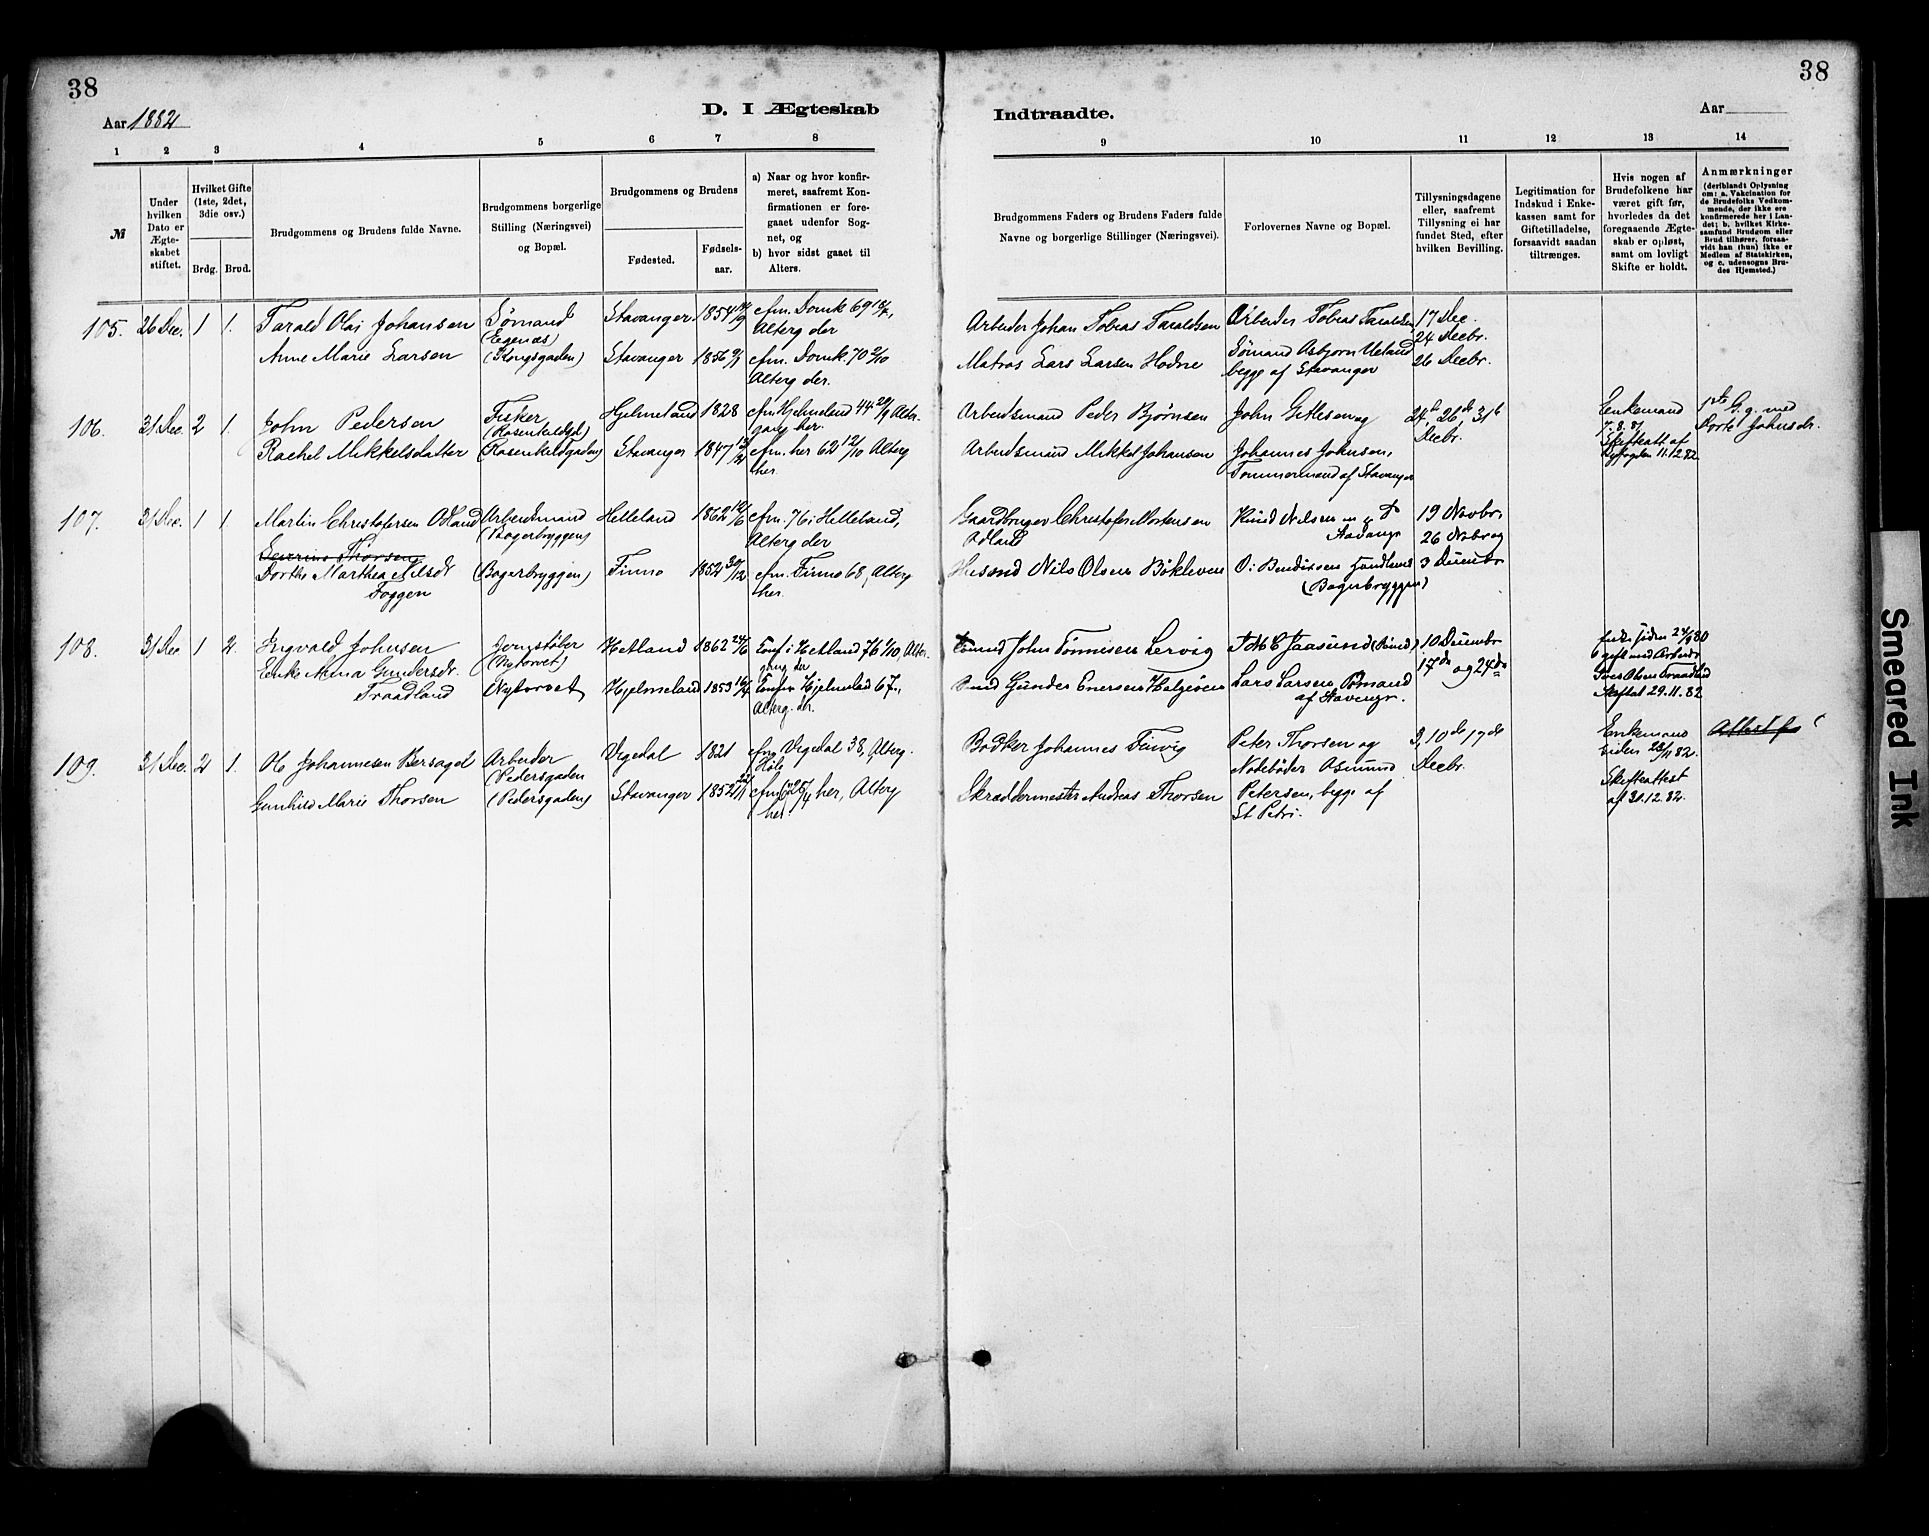 38
38
Aar 1882
D. I Ægteskab
Indtraadte.
Aar
1 2 3 4 5 6 7 8
9 10 11 12 13 14
№
Under hvilken Dato er Ægteskabet stiftet.
Hvilket Gifte (1ste, 2det, 3die osv.)
Brdg. Brud.
Brudgommens og Brudens fulde Navne.
Brudgommens borgerlige Stilling (Næringsvei) og Bopæl.
Brudgommens og Brudens
Fødested.
Fødselsaar.
a) Naar og hvor konfirmeret, saafremt Konfirmationen er foregaaet udenfor Sognet, og
b) hvor sidst gaaet til Alters.
Brudgommens Faders og Brudens Faders fulde Navne og borgerlige Stillinger (Næringsvei).
Forlovernes Navne og Bopæl.
Tillysningsdagene eller, saafremt Tillysning ei har fundet Sted, efter hvilken Bevilling.
Legitimation for Indskud i Enkekassen samt for Giftetilladelse, forsaavidt saadan tiltrænges.
Hvis nogen af Brudefolkene har været gift før, hvorledes da det foregaaende Ægteskab er opløst, samt om lovligt Skifte er holdt.
Anmærkninger
(deriblandt Oplysning om: a. Vakcination for de Brudefolks Vedkommende, der ikke ere konfirmerede her i Landet; b. hvilket Kirkesamfund Brudgom eller Brud tilhører, forsaavidt han (hun) ikke er Medlem af Statskirken, og c. udensogns Brudes Hjemsted.)
105. 26 Dec. 1 1. Tarald Olaj Johansen Sømand (Egenæs) Stavanger 1854 cfm. Domk 69 18/7, Alterg der Arbeider Johan Tobias Taraldsen Arbeider Tobias Taraldsen 17 Dec. 24 Decbr.
Anne Marie Larsen (Kongsgaden) Stavanger 1856 cfm. Domk. 70 2/10 Alterg der. Matros Lars Larsen Hodne Sømand Asbjørn Ueland begge af Stavanger 26 Decbr.
106. 31 Dec. 2 1. John Pedersen Fisker (Rosenkildgd) Hjelmeland 1828 cfm Hjelmeland 44 29/9 Altergang her. Arbeidsmand Peder Bjørnsen John Gitlesen og 24d, 26de, 31t Decbr. Enkemand 7.8.81 Skifteatt. af 11.12.82 1ste G. g. med Dorte Johnsdr.
Rachel Mikkelsdatter (Rosenkildgaden) Stavanger 1847 cfm. her 62 12/10 Alterg her. Arbeidsmand Mikkel Johansen Johannes Johnsen, Tømmermand af Stavanger
107. 31 Dec. 1 1. Martin Christofersen Adland Arbeidsmand (Bagerbryggen) Helleland 1862 12/6 cfm. 76 i Helleland, Alterg der Gaardbruger Christofer Mortensen Adland Knud Nilsen Stavanger 19 Novbr. 26 Novbr og
Severine Thorsen
Dorthe Marthea Nilsdr Foggen (Bagerbryggen) Finnø 1852 30/12 cfm. Finnø 68, Alterg her. Husmd Nils Olsen Bøkleven O. Bendixen Handlend (Bagerbryggen) 3 Decembr
108. 31 Dec 1 2. Ingvald Johnsen (Nytorvet) Hetland 1862 24/6 Conf i Hetland 76 1/10, Altergang der John Tønnesen Lervig Jaasund 10 Decembr
Enke Anna Gundersdr. Traadland Nytorvet Hjelmeland 1853 Confm Hjelmeland 67, Alterg. der. Gunder Enersen Helgøen Lars Larsen, Sømand af Stavanger. 17de og 24de Enke siden 24/9 80 gift med Arbeidr Olsen Traadland Skiftet 29.11.82
109. 31 Dec. 2 1. Ole Johannesen Bersagel Arbeider (Pedersgaden Vigedal 1821 cfm Vigedal 38, Alterg. Høle Bødker Johannes Peter Thorsen og 3, 10de 17de Decbr. Enkemand siden 28/11 82. Skifteattest af 30.12.82. Attest f
Gunhild Marie Thorsen (Pedersgaden) Stavanger 1852 cfm her, Alterg her. Skræddermester Andreas Thorsen Nodebøder Asmund Petersen, begge af St Petri.
Smeared Ink